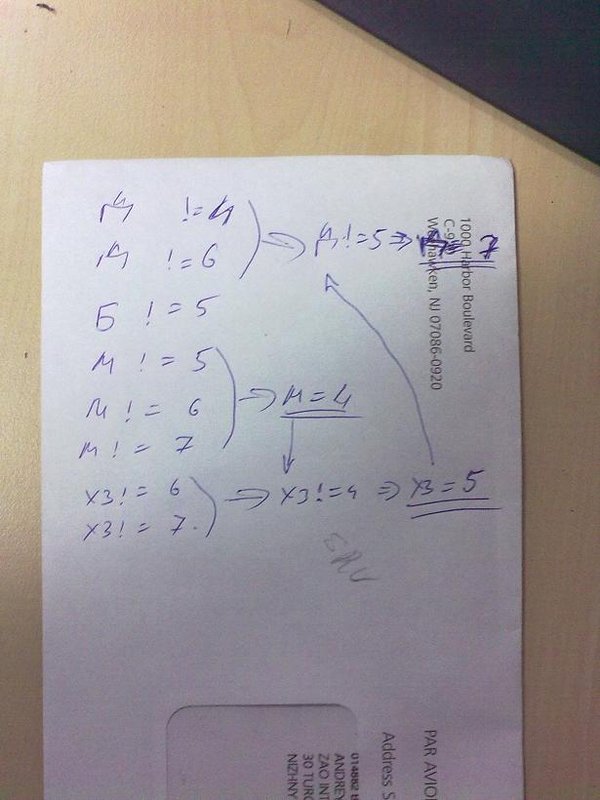 Д != 4
Д != 6
Д != 5 => Д = 7
Б != 5
М != 5
М != 6
М != 7
=> М = 4
ХЗ != 6
ХЗ != 7
=> ХЗ != 4 => ХЗ = 5
1000 Harbor Boulevard
Weehawken, NJ 07086-0920
PAR AVIO
Address S
014882
ANDREY
ZAO INT
30 TURG
NIZHNY